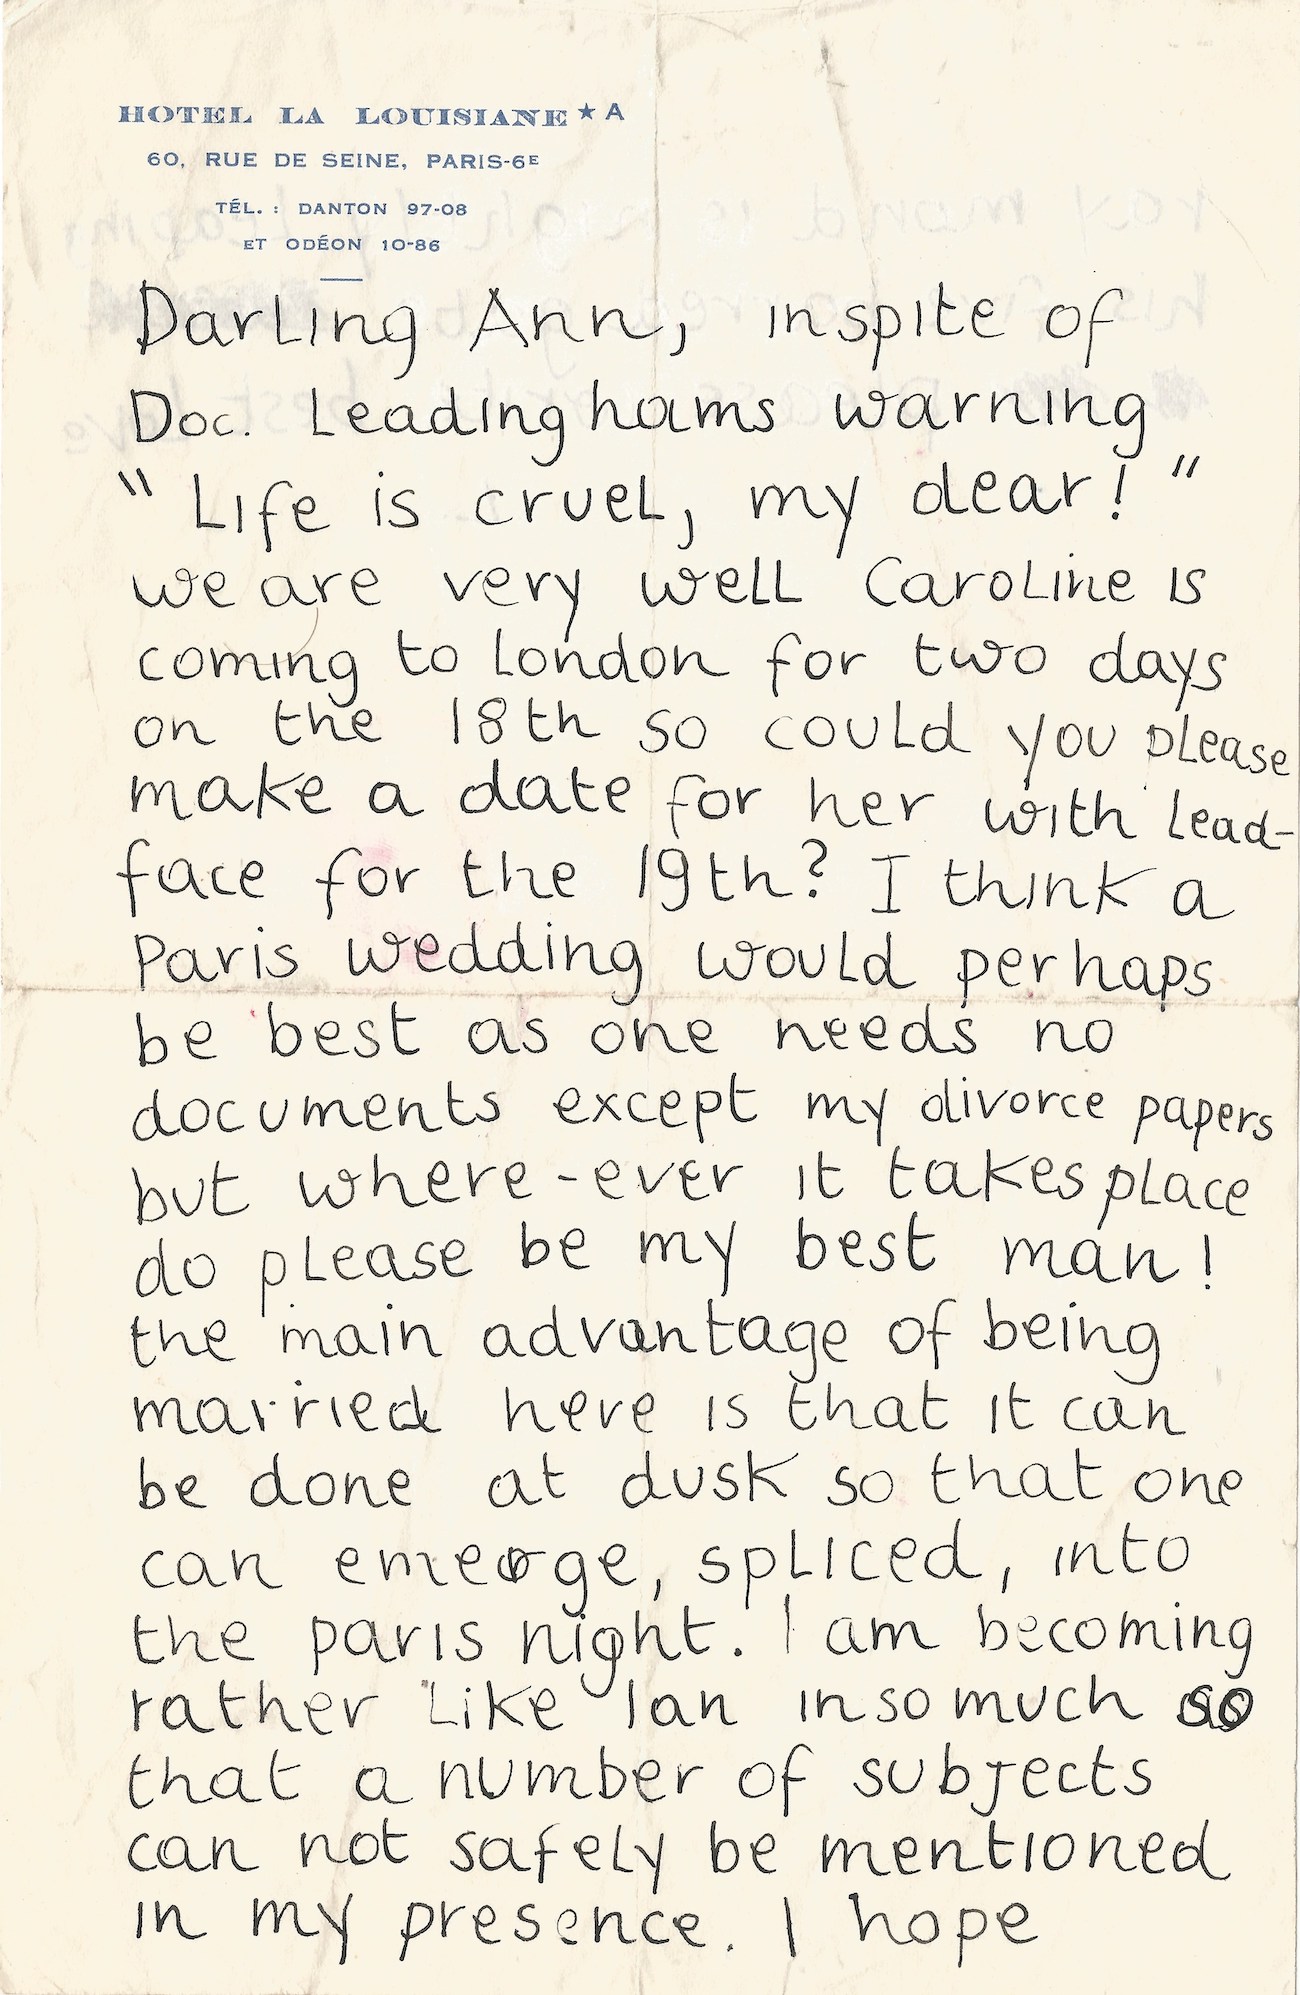 HOTEL LA LOUISIANE ★ A
60, RUE DE SEINE, PARIS-6E
TÉL. : DANTON 97-08
ET ODÉON 10-86
Darling Ann, inspite of
Doc. Leadinghams warning
"Life is cruel, my dear!"
we are very well Caroline is
coming to London for two days
on the 18th so could you please
make a date for her with Lead-
face for the 19th? I think a
Paris wedding would perhaps
be best as one needs no
documents except my divorce papers
but where-ever it takes place
do please be my best man!
the main advantage of being
married here is that it can
be done at dusk so that one
can emerge, spliced, into
the paris night. I am becoming
rather like Ian in so much so
that a number of subjects
can not safely be mentioned
in my presence. I hope